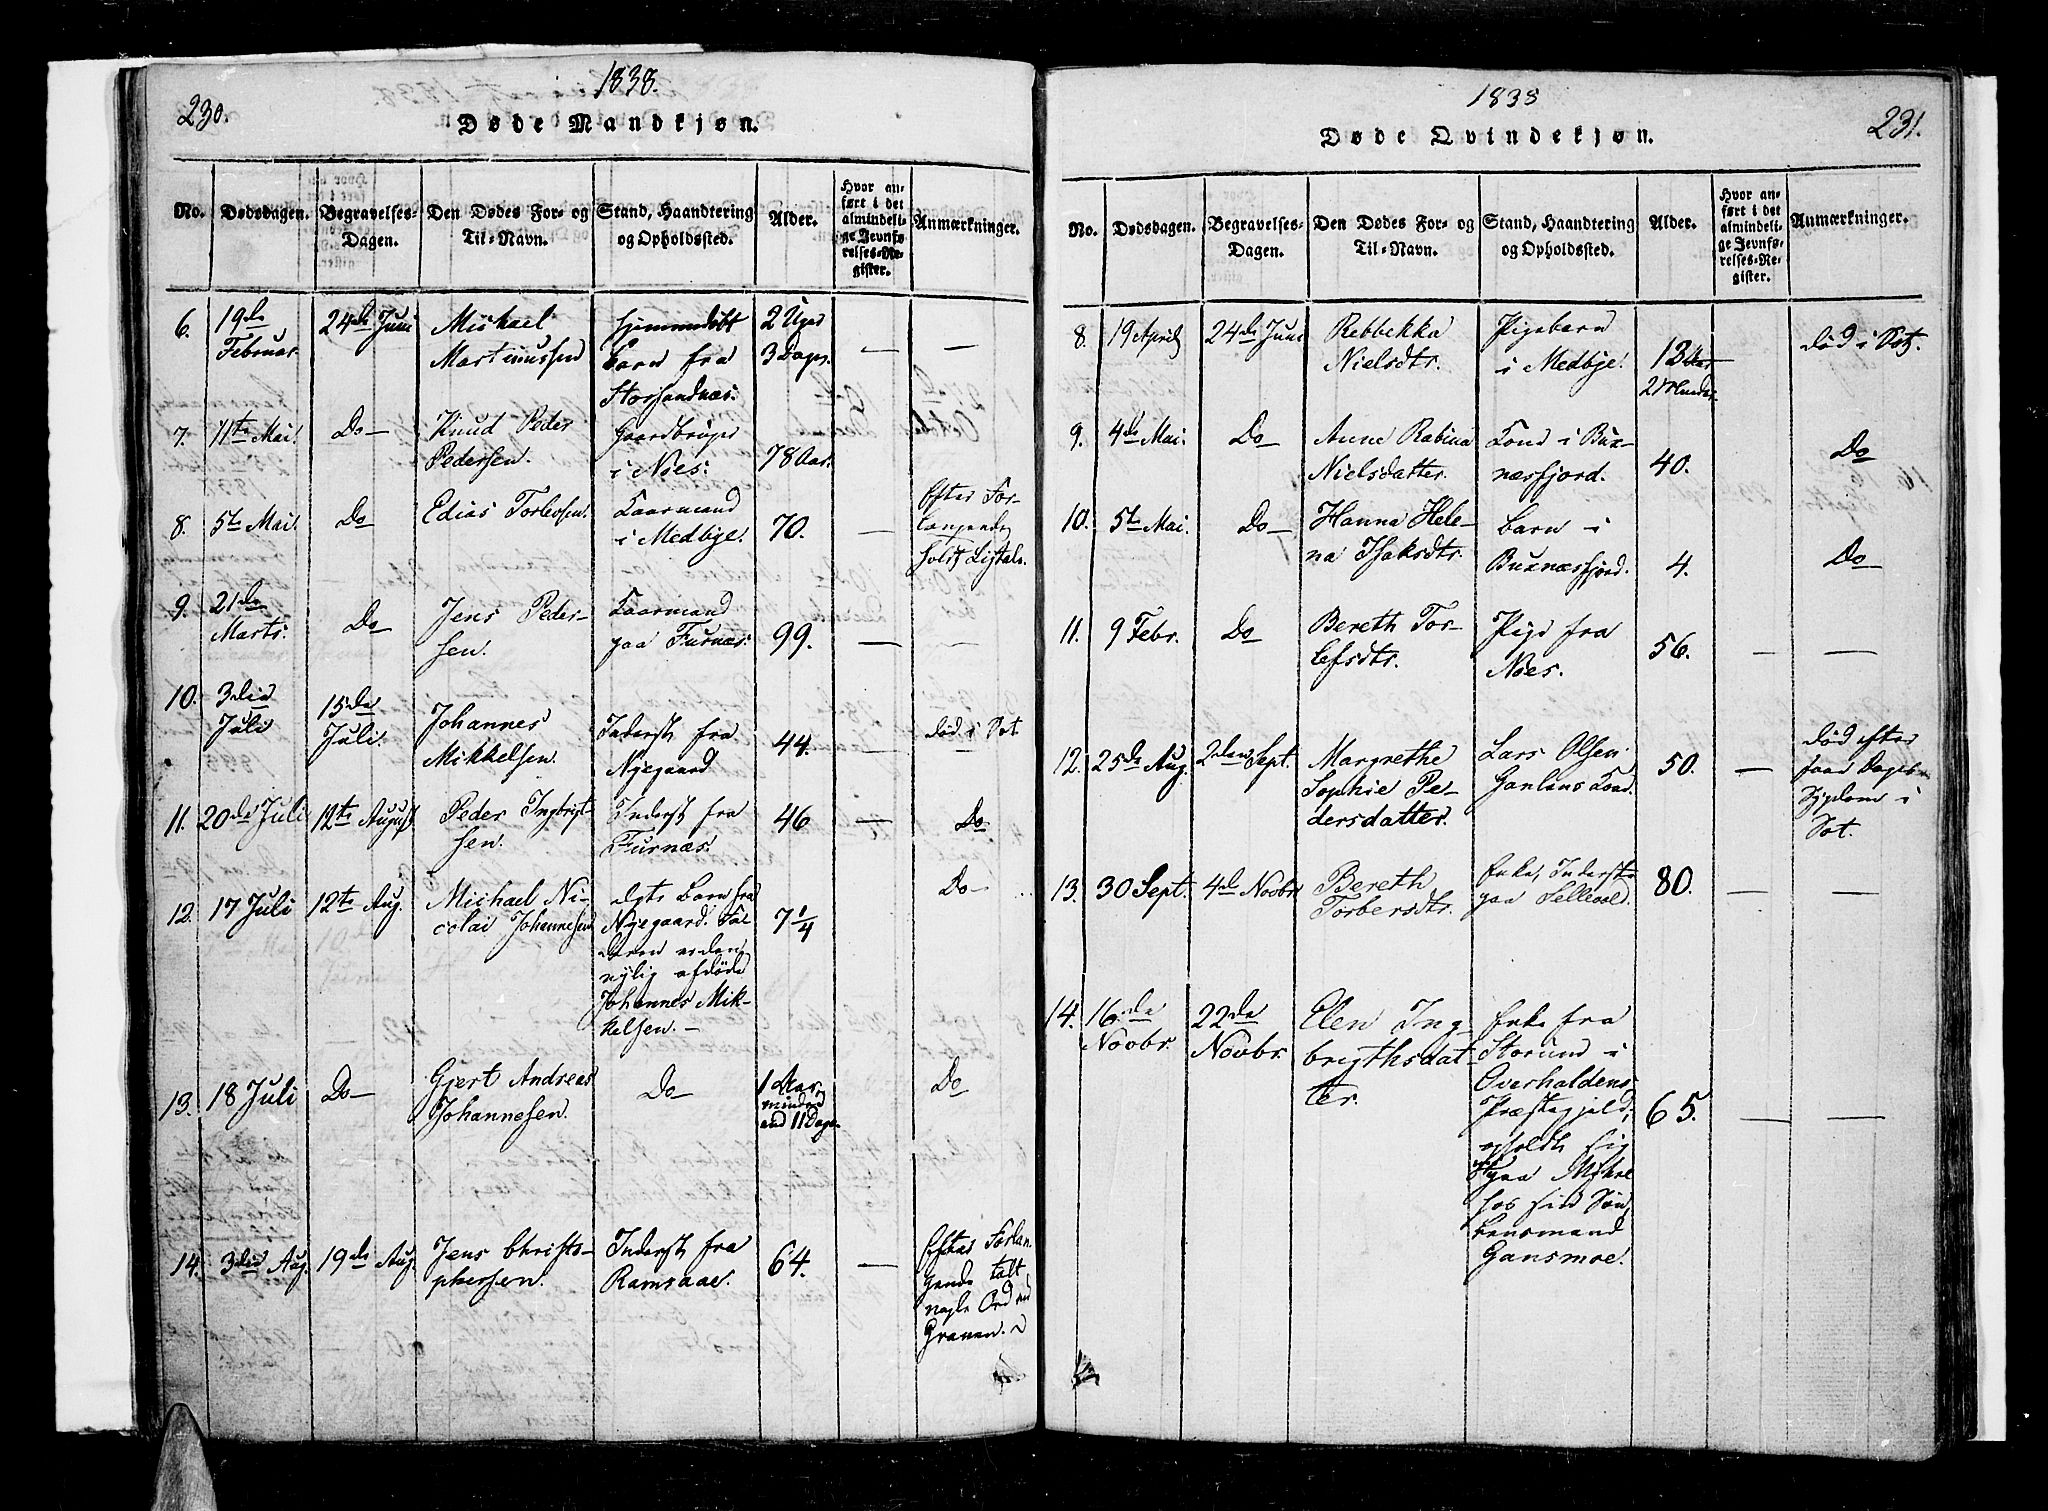 230.
1838.
Døde Mandkjøn.
No.
Dødsdagen.
Begravelses-
Dagen.
Den Dødes For- og
Til-Navn.
Stand, Haandtering
og Opholdssted.
Alder.
Hvor an-
ført i det
almindeli-
ge Jevnfø-
relses-Re-
gister.
Anmærkninger.
6.
19de
Februar.
24de Juni
Michael
Martinussen
hjemmedøbt
Barn fra
Storsandnæs.
2 Uger
3 Dage.
—
—
7.
11te Mai.
Do —
Knud Peder
Pedersen.
Gaardbruger
i Noes.
78 Aar.
8.
5te Mai.
Do
Edias Torlevsen.
Kaarmand
i Medbye.
70.
—
Efter For-
langende
holdt Ligtale.
9.
21de
Marts.
Do
Jens Peder-
sen.
Kaarmand
paa Furnæs.
99.
—
—
10.
3die
Juli
15de
Juli.
Johannes
Mikkelsen.
Inderst fra
Nyegaard
44.
—
død i Sot
11.
20de Juli
12te August
Peder Ingbrigt-
sen.
Inderst fra
Furnæs.
46
—
Do
12.
17 Juli
12te Aug.
Michael Ni-
colai Johannesen
Barn fra
Nyegaard. Fa-
deren er den
nylig afdøde
Johannes Mik-
kelsen. —
7 1/4
Do —
13.
18 Juli
Do —
Gjert Andreas
Johannesen.
Do
1 Aar
mindre
end 11 Dage
Do
14.
3die Aug.
19de Aug.
Jens Christo-
phersen.
Inderst fra
Ramsaae.
64.
—
Efter Forlan-
gende talt
nogle Ord ved
Graven.
1838
231.
Døde Qvindekjøn.
No.
Dødsdagen.
Begravelses-
Dagen.
Den Dødes For- og
Til-Navn.
Stand, Haandtering
og Opholdssted.
Alder.
Hvor an-
ført i det
almindeli-
ge Jevnfø-
relses-Re-
gister.
Anmærkninger.
8.
19 April
24de Juni
Rebbekka
Nielsdtr.
Pigebarn
i Medbye.
13 Aar
død i Sot.
9.
4de Mai.
Do
Anne Rabina
Nielsdatter.
Kone i Bux-
næsfjord.
40.
Do
10.
5te Mai.
Do —
Hanna Hele-
na Isaksdtr.
Barn i
Buxnæsfjord.
4.
Do
11.
9 Febr.
Do
Bereth Tor-
lefsdtr.
Pige fra
Noes.
56.
—
—
12.
25de Aug.
2den Sept.
Margrethe
Sophie Pe-
dersdatter.
Lars Olsen
Kone.
50.
—
død efter
faae Dages
Sygdom i
Sot.
13.
30 Sept.
4de Novbr
Bereth
Torbersdtr.
Enke, Inderst
paa Sellevold.
80.
—
—
14.
16de
Novbr.
22de
Novbr
Elen Ing-
brigthsdat-
ter.
Enke fra
Storund i
Overhaldens
Præstegjeld,
opholdt sig
paa
hos sin Søn,
Lensmand
Gansmoe.
65.
—
—